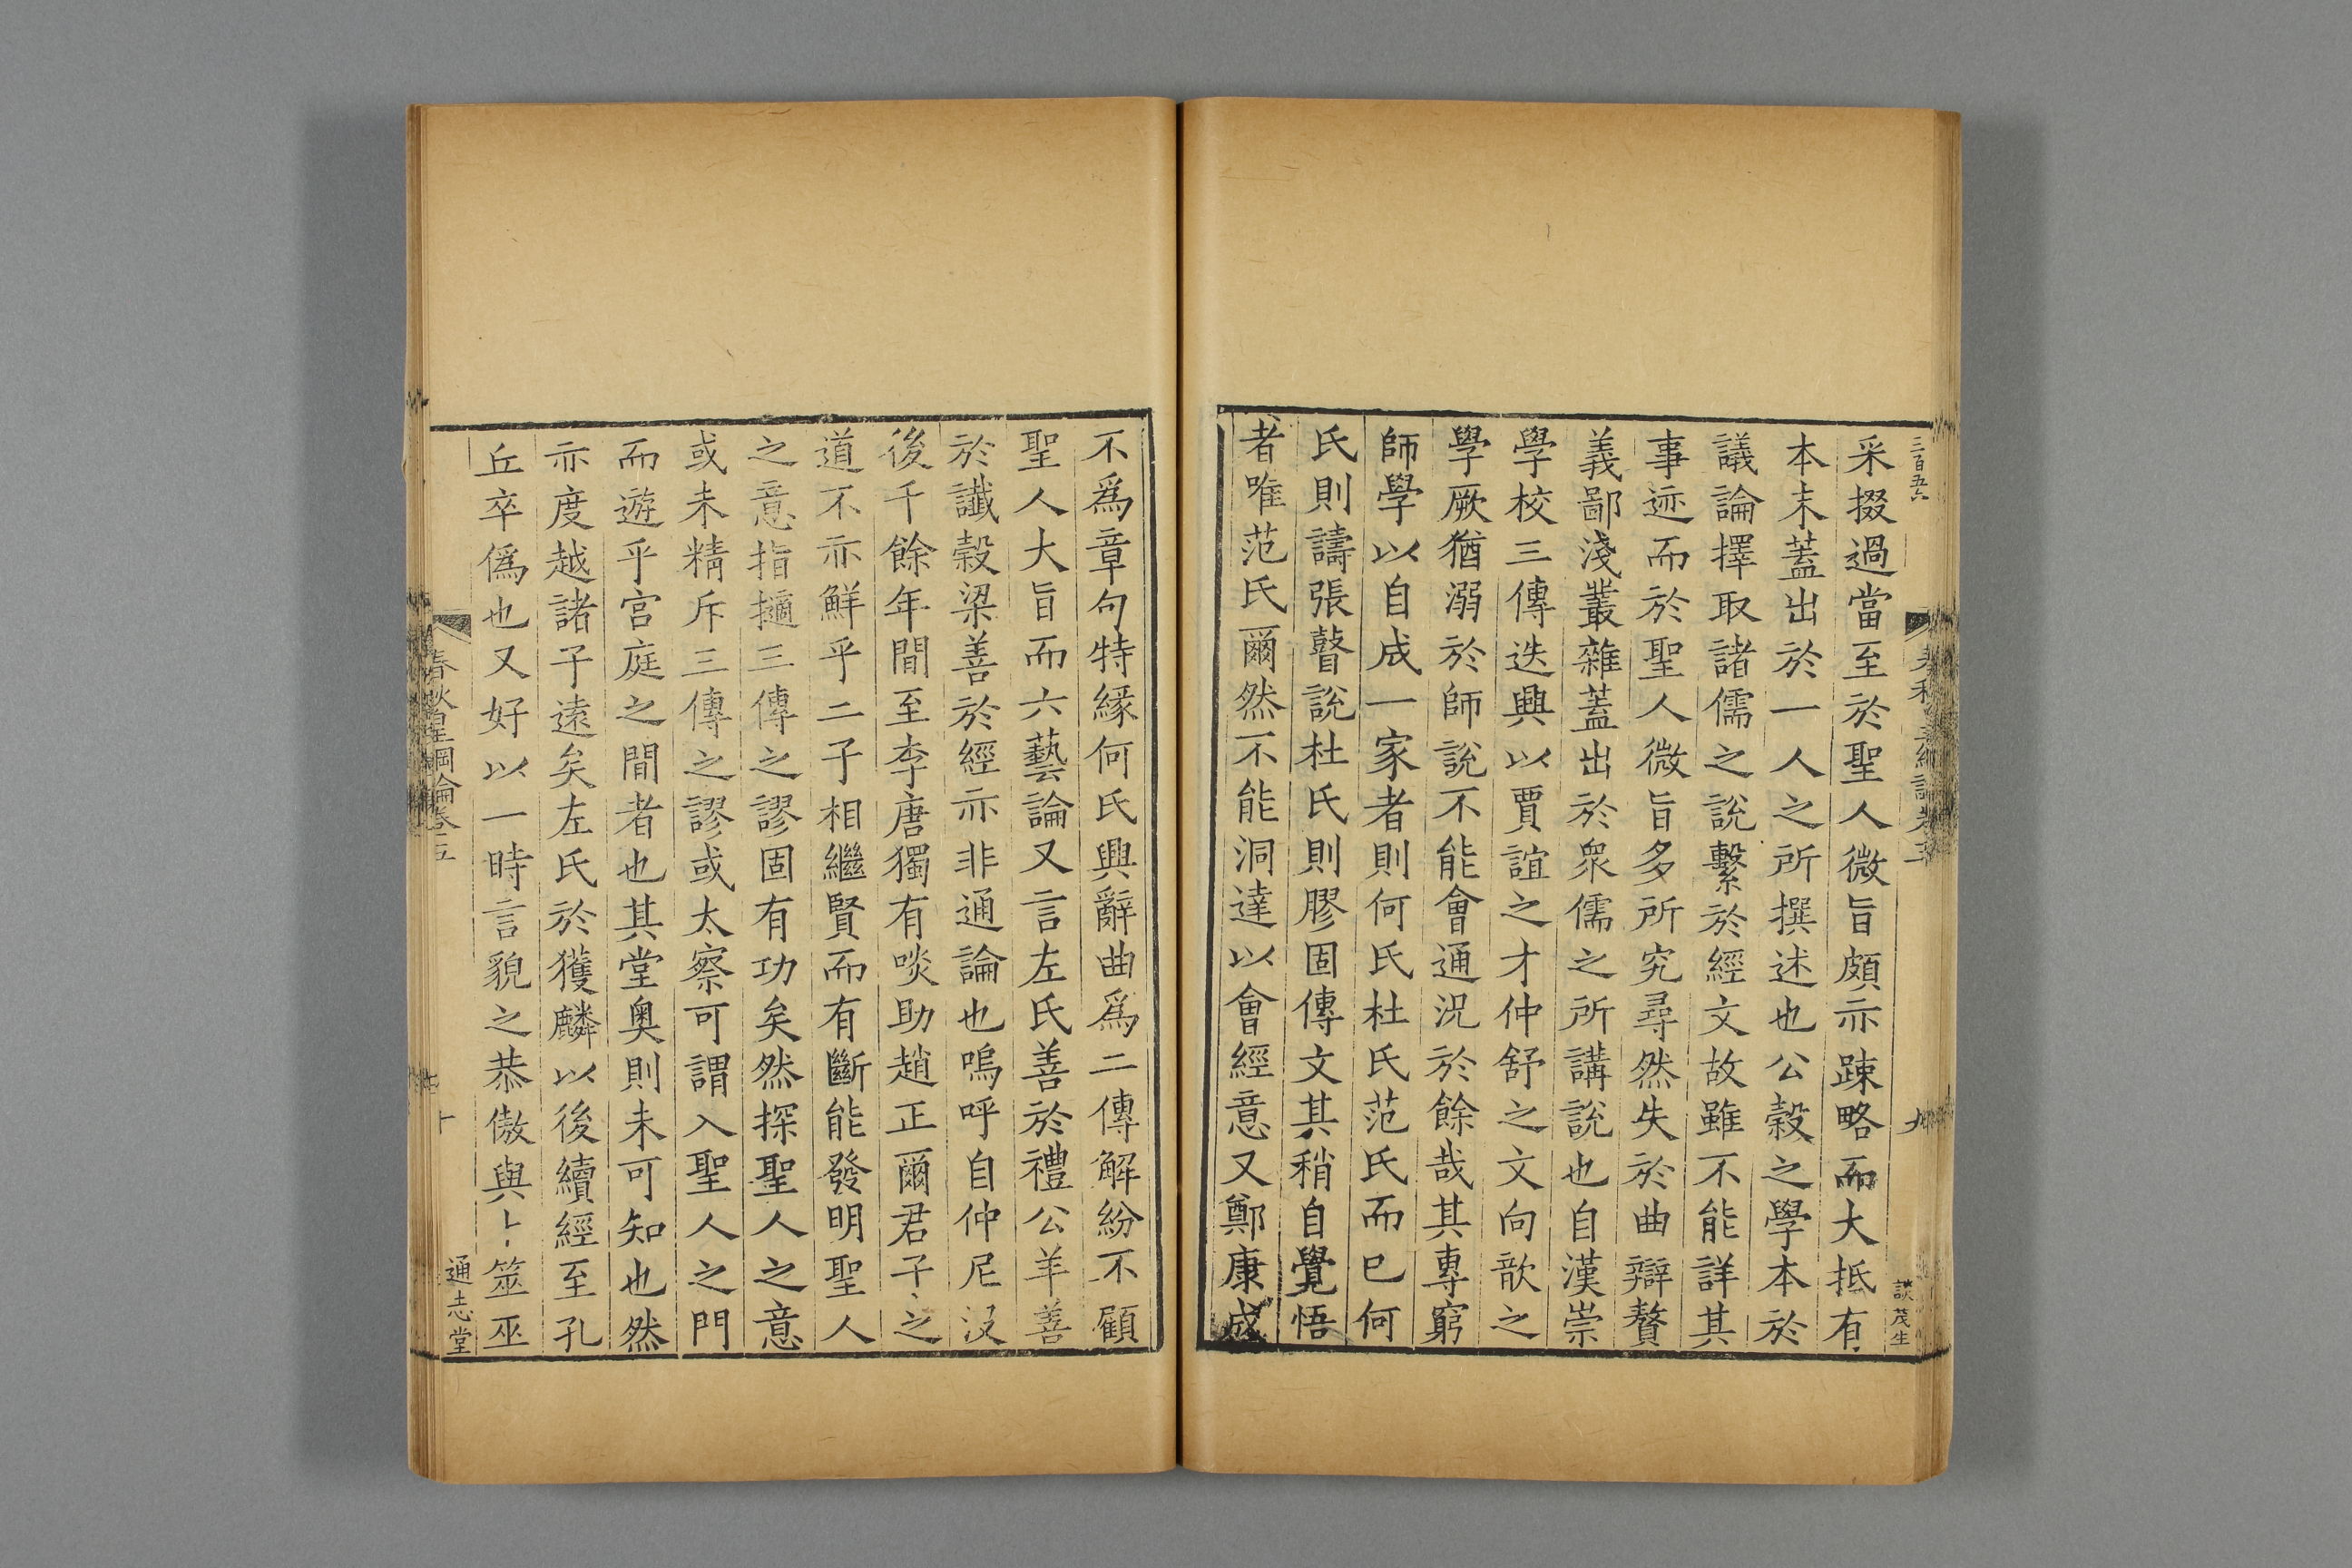 三百五六
談茂生
九
采掇過當至於聖人微旨頗亦踈略而大抵有
本末蓋出於一人之所撰述也公糓之學本於
議論擇取諸儒之說繫於經文故雖不能詳其
事迹而於聖人微旨多所究尋然失於曲辯贅
義鄙淺叢雜蓋出於衆儒之所講說也自漢崇
學校三傳迭興以賈誼之才仲舒之文向歆之
學厥猶溺於師說不能會通況於餘哉其專窮
師學以自成一家者則何氏杜氏范氏而已何
氏則譸張瞽說杜氏則膠固傳文其稍自覺悟
者唯范氏爾然不能洞達以會經意又鄭康成
不爲章句特緣何氏興辭曲爲二傳解紛不顧
聖人大旨而六藝論又言左氏善於禮公羊善
於讖穀梁善於經亦非通論也嗚呼自仲尼沒
後千餘年間至李唐獨有啖助趙正爾君子之
道不亦鮮乎二子相繼賢而有斷能發明聖人
之意指擿三傳之謬固有功矣然探聖人之意
或未精斥三傳之謬或太察可謂入聖人之門
而遊乎宫庭之間者也其堂奧則未可知也然
亦度越諸子遠矣左氏於獲麟以後續經至孔
丘卒僞也又好以一時言貌之恭傲與卜筮巫
春秋皇綱論卷五
十
通志堂